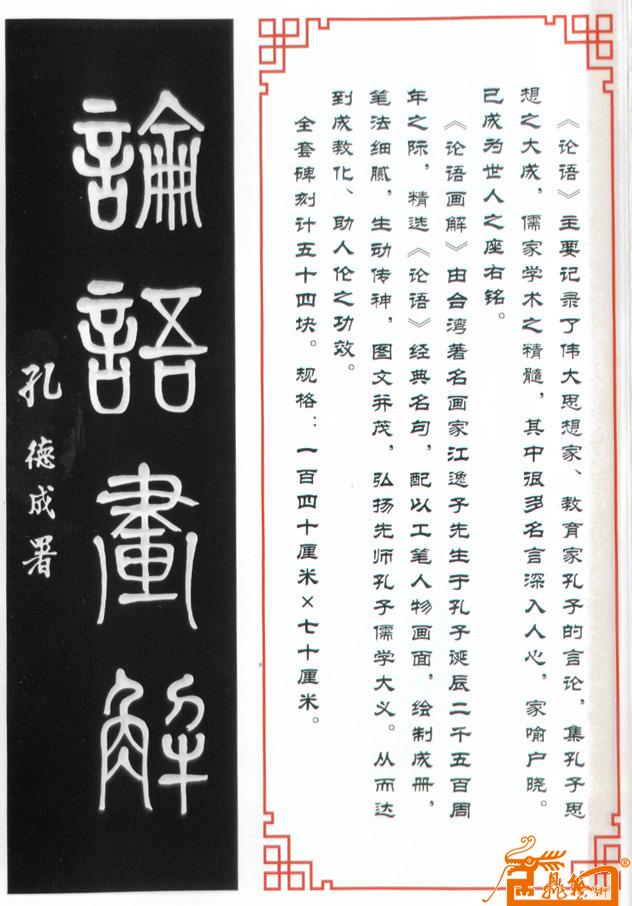 論語畫解
孔德成署
《论语》主要记录了伟大思想家、教育家孔子的言论，集孔子思
想之大成，儒家学术之精髓，其中很多名言深入人心，家喻户晓。
已成为世人之座右铭。
《论语画解》由台湾著名画家江逸子先生于孔子诞辰二千五百周
年之际，精选《论语》经典名句，配以工笔人物画面，绘制成册，
笔法细腻，生动传神，图文并茂，弘扬先师孔子儒学大义。从而达
到成教化、助人伦之功效。
全套碑刻计五十四块。规格：一百四十厘米×七十厘米。